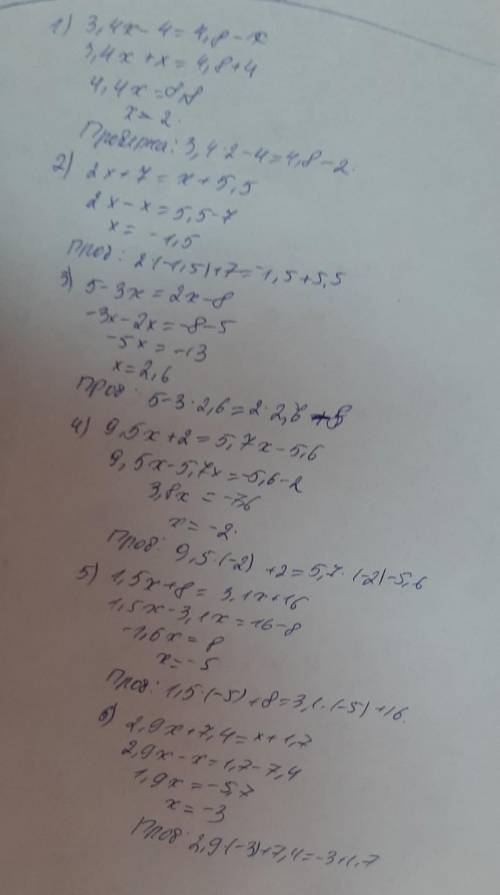 1) 3,4x-4=4,8-x
3,4x+x=4,8+4
4,4x=8,8
x=2.
Проверка: 3,4·2-4=4,8-2.
2) 2x+7=x+5,5
2x-x=5,5-7
x=-1,5
Пров: 2·(-1,5)+7=-1,5+5,5
3) 5-3x=2x-8
-3x-2x=-8-5
-5x=-13
x=2,6
Пров: 5-3·2,6=2·2,6-8
4) 9,5x+2=5,7x-5,6
9,5x-5,7x=-5,6-2
3,8x=-7,6
x=-2.
Пров: 9,5·(-2)+2=5,7·(-2)-5,6
5) 1,5x+8=3,1x+16
1,5x-3,1x=16-8
-1,6x=8
x=-5
Пров: 1,5·(-5)+8=3,1·(-5)+16.
6) 2,9x+7,4=x+1,7
2,9x-x=1,7-7,4
1,9x=-5,7
x=-3
Пров: 2,9·(-3)+7,4=-3+1,7